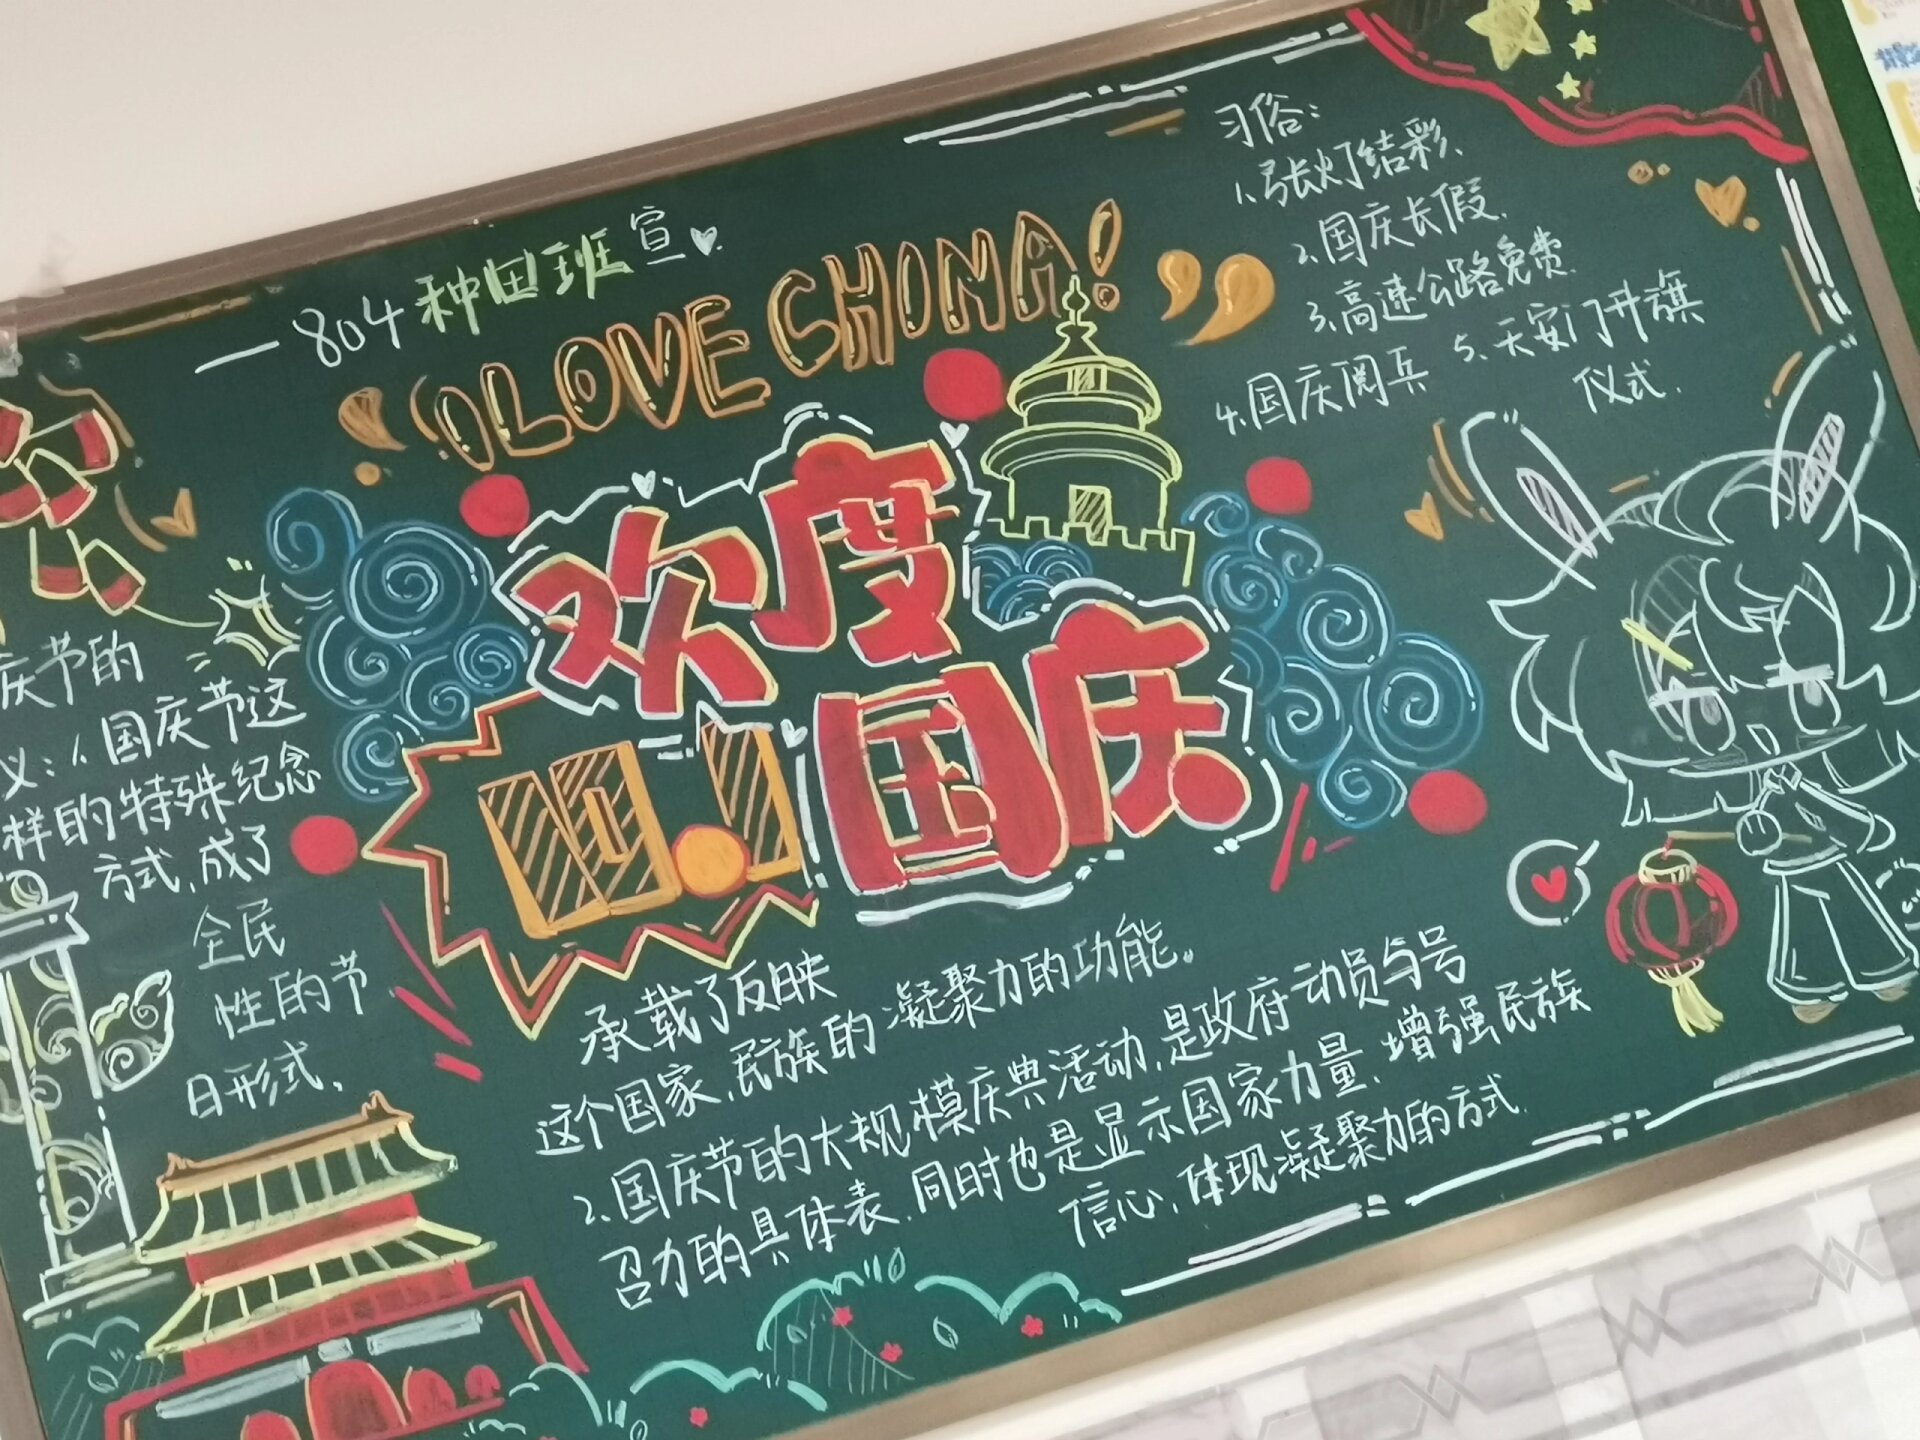 ——804种田班宣
“I LOVE CHINA!”
欢度
国庆
习俗:
1.张灯结彩、
2.国庆长假.
3.高速公路免费.
4.国庆阅兵 5、天安门升旗
仪式.
庆节的
义:1.国庆节这
样的特殊纪念
方式,成了
全民
性的节
日形式.
承载了反映
这个国家,民族的凝聚力的功能。
2.国庆节的大规模庆典活动,是政府动员与号
召力的具体表.同时也是显示国家力量,增强民族
信心,体现凝聚力的方式.